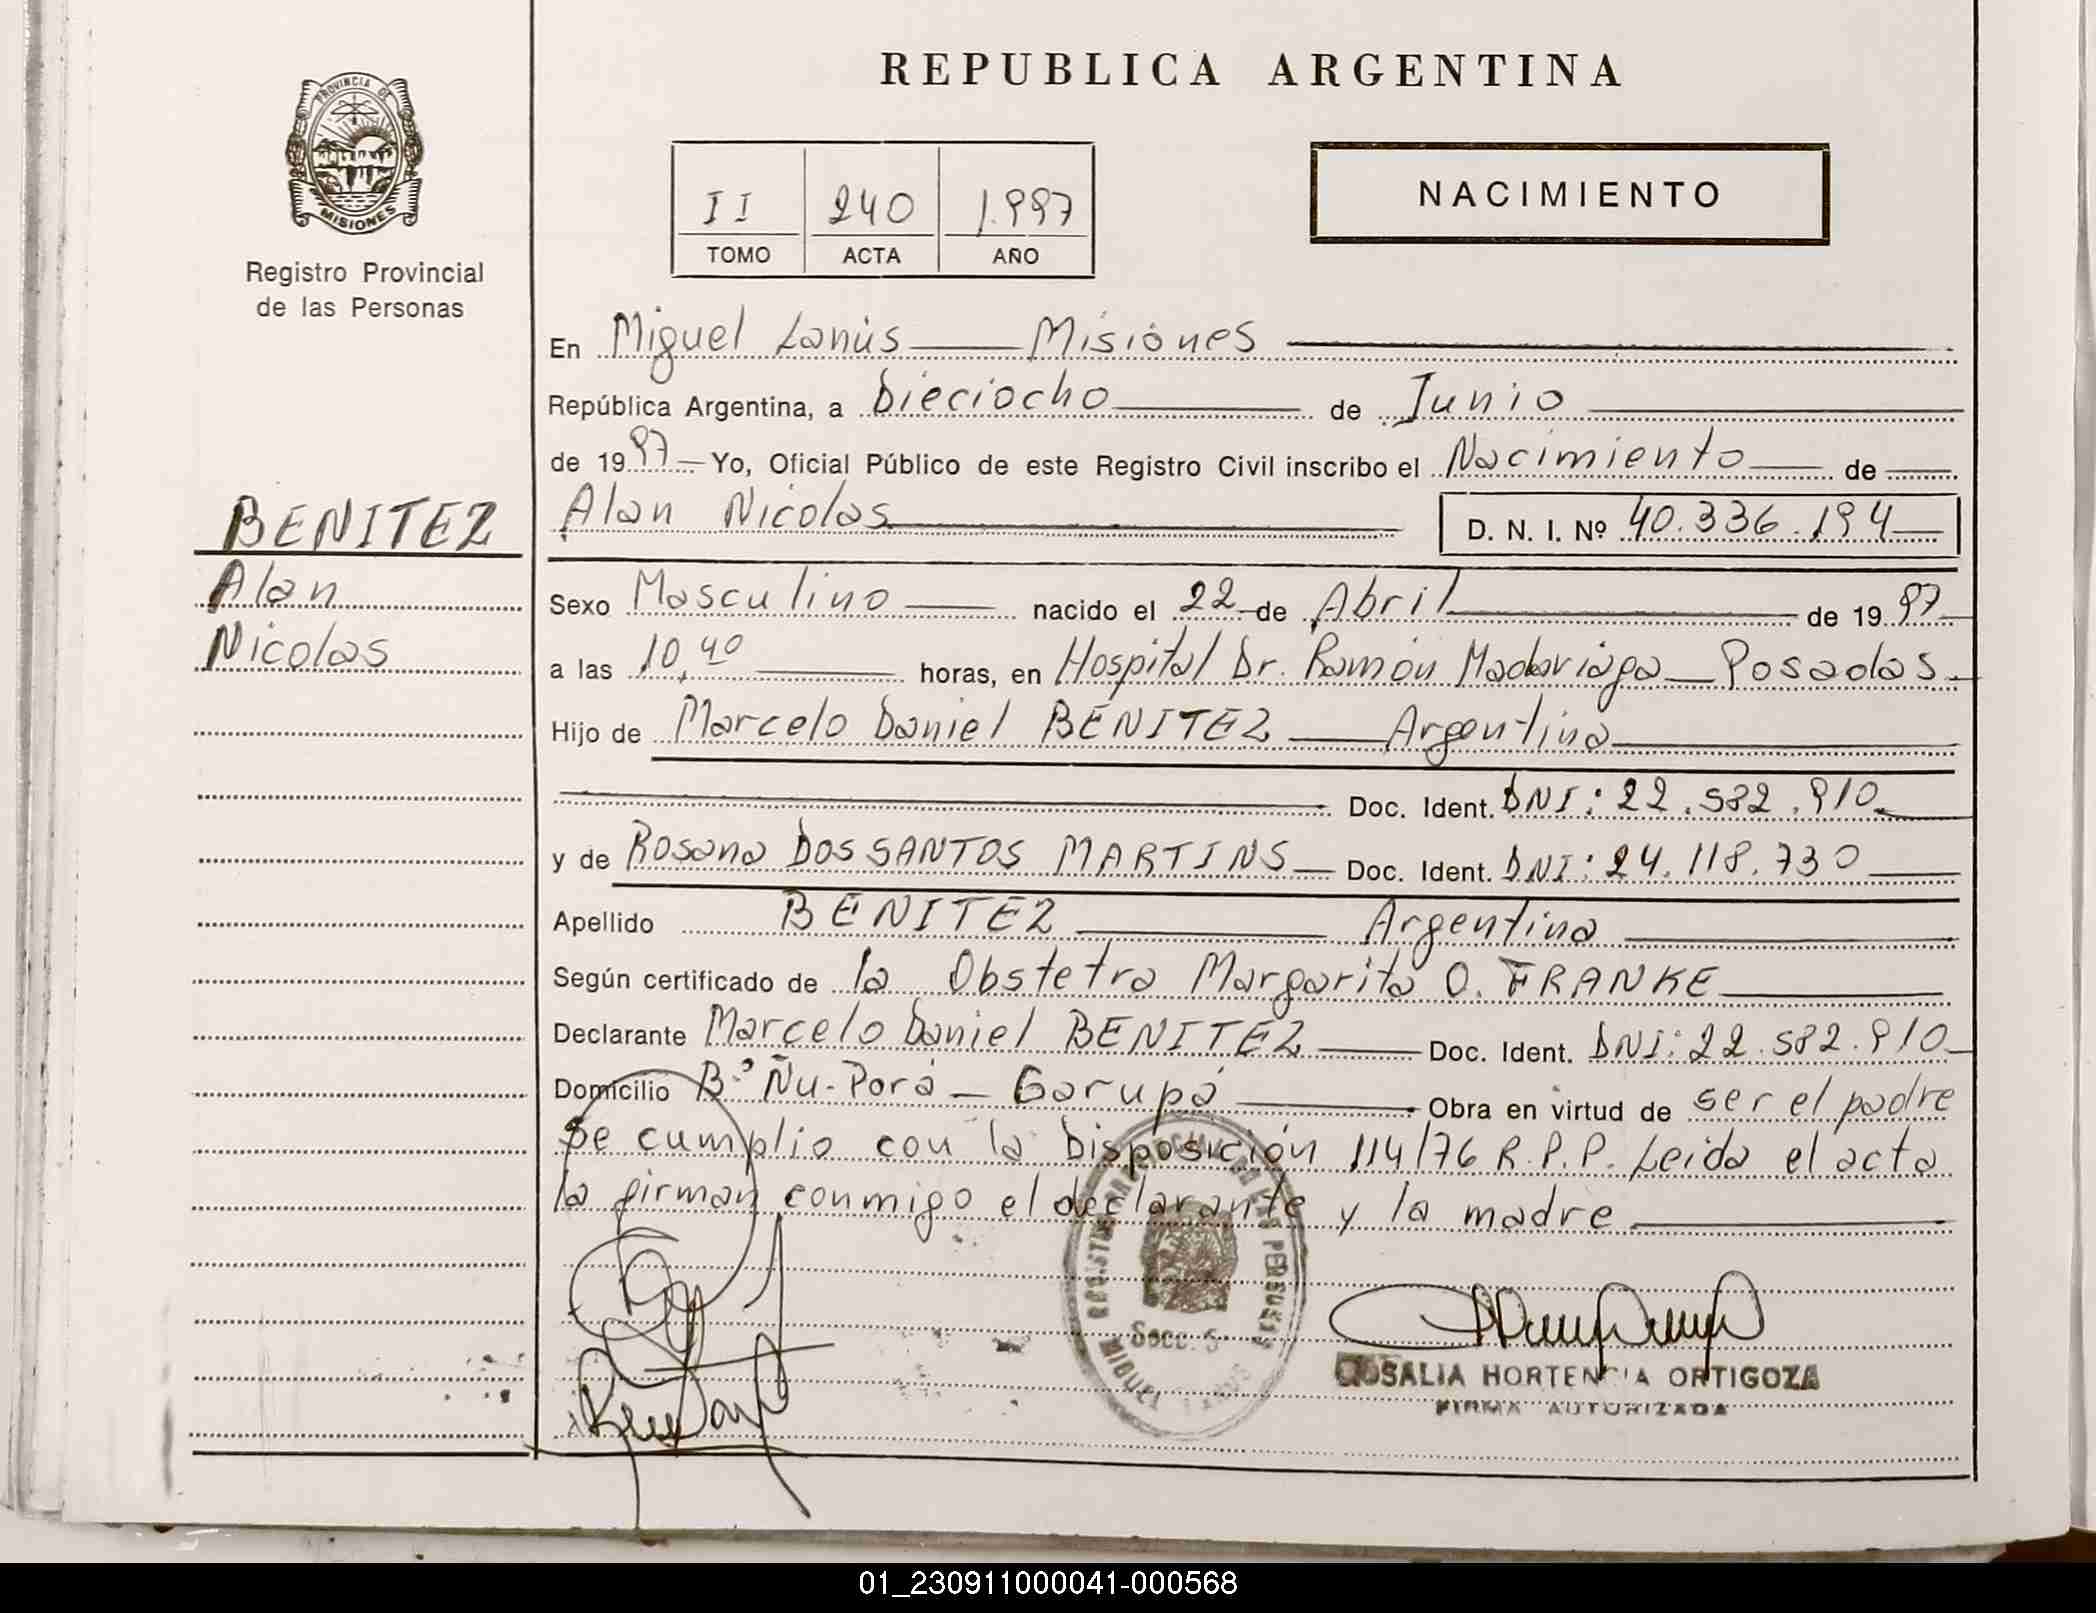 PROVINCIA DE
MISIONES
Registro Provincial
de las Personas
BENITEZ
Alan
Nicolas
REPUBLICA ARGENTINA
II 240 1.997
TOMO ACTA AÑO
NACIMIENTO
En Miguel Lanús Misiónes
República Argentina, a Dieciocho de Junio
de 1997 Yo, Oficial Público de este Registro Civil inscribo el Nacimiento de
Alan Nicolas D. N. I. Nº 40.336.194
Sexo Masculino nacido el 22 de Abril de 1997
a las 10,40 horas, en Hospital Dr. Ramón Madariaga Posadas
Hijo de Marcelo Daniel BENITEZ Argentina
Doc. Ident. DNI: 22.582.910
y de Rosana DOS SANTOS MARTINS Doc. Ident. DNI: 24.118.730
Apellido BENITEZ Argentina
Según certificado de la Obstetra Margarita O. FRANKE
Declarante Marcelo Daniel BENITEZ Doc. Ident. DNI: 22.582.910
Domicilio B.º Ñu-Porá - Garupá Obra en virtud de ser el padre
Se cumplio con la Disposición 114/76 R.P.P. Leida el acta
la firman conmigo el declarante y la madre
Secc. 5
MIGUEL LANUS
ROSALIA HORTENCIA ORTIGOZA
FIRMA AUTORIZADA
01_230911000041-000568